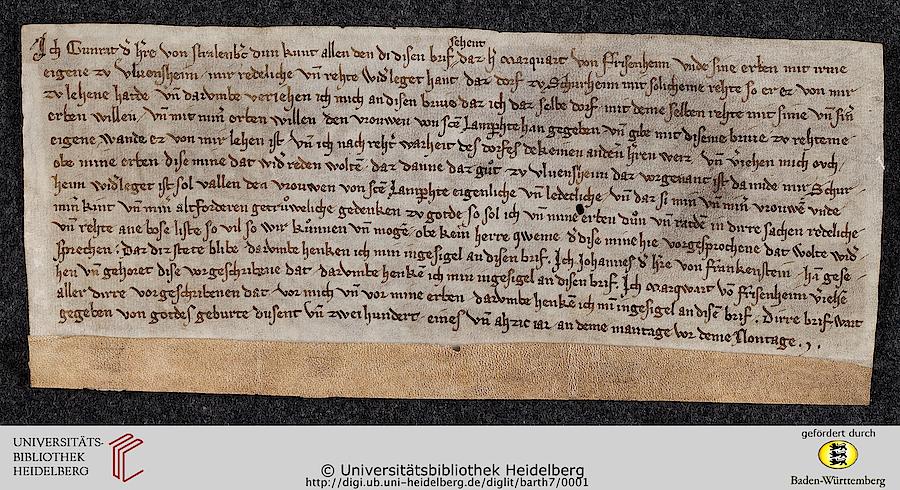 sehent
Ich Cunrat d' h're von stralenb'c dun kunt allen den di disen brif dar h' marquart von frisenheim unde sine erben mit irme
eigene zv vluensheim mir redeliche vn̄ rehte wid'leget hant daz dorf zv Schurheim mit solicheme rehte so er ez von mir
zv lehene hatde vn̄ darumbe veriehen ich mich an disen briue daz ich daz selbe dorf mit deme selben rehte mit sime vn̄ sin'
erben willen vn̄ mit min' erben willen den vrouwen von sc̄e Lamprehte han gegeben vn̄ gibe mit diseme briue zv rehteme
eigene wande ez von mir lehen ist vn̄ ich nach reht' warheit des dorfes dekeinen andern h'ren weiz vn̄ v'iehen mich ovch
obe mine erben dise mine dat wid'reden woltē daz danne daz gůt zv vluensheim daz vorgenant ist da mide mir Schur
heim wid'leget ist sol vallen den vrouwen von sc̄e Lamprehte eigenliche vn̄ ledecliche vn̄ daz si min vn̄ min' vrouwē unde
min' kint vn̄ min' altforderen getrůweliche gedenken zv gotde so sol ich vn̄ mine erben důn vn̄ raden in dirre sachen redeliche
vn̄ rehte ane bose liste so vil so wir kunnen vn̄ mogē obe kein herre qweme d' dise mine hie vorgesprochene dat wolte wid'
sprechen Daz diz stete blibe darumbe henken ich min ingesigel an disen brif. Ich Johannes d' h're von frankenstein han gese
hen vn̄ gehoret dise vorgeschribene dat darumbe henkē ich min ingesigel an disen brif. Ich marqwart vō frisenheim v'iehe
aller dirre vorgeschribenen dat vor mich vn̄ vor mine erben darumbe henkē ich min ingesigel an disē brif. Dirre brif wart
gegeben von gotdes geburte dusent vn̄ zweihundert eines vn̄ ahzic iar an deme mantage vor deme Nontage.
UNIVERSITÄTS-
BIBLIOTHEK
HEIDELBERG
© Universitätsbibliothek Heidelberg
http://digi.ub.uni-heidelberg.de/diglit/barth7/0001
gefördert durch
Baden-Württemberg